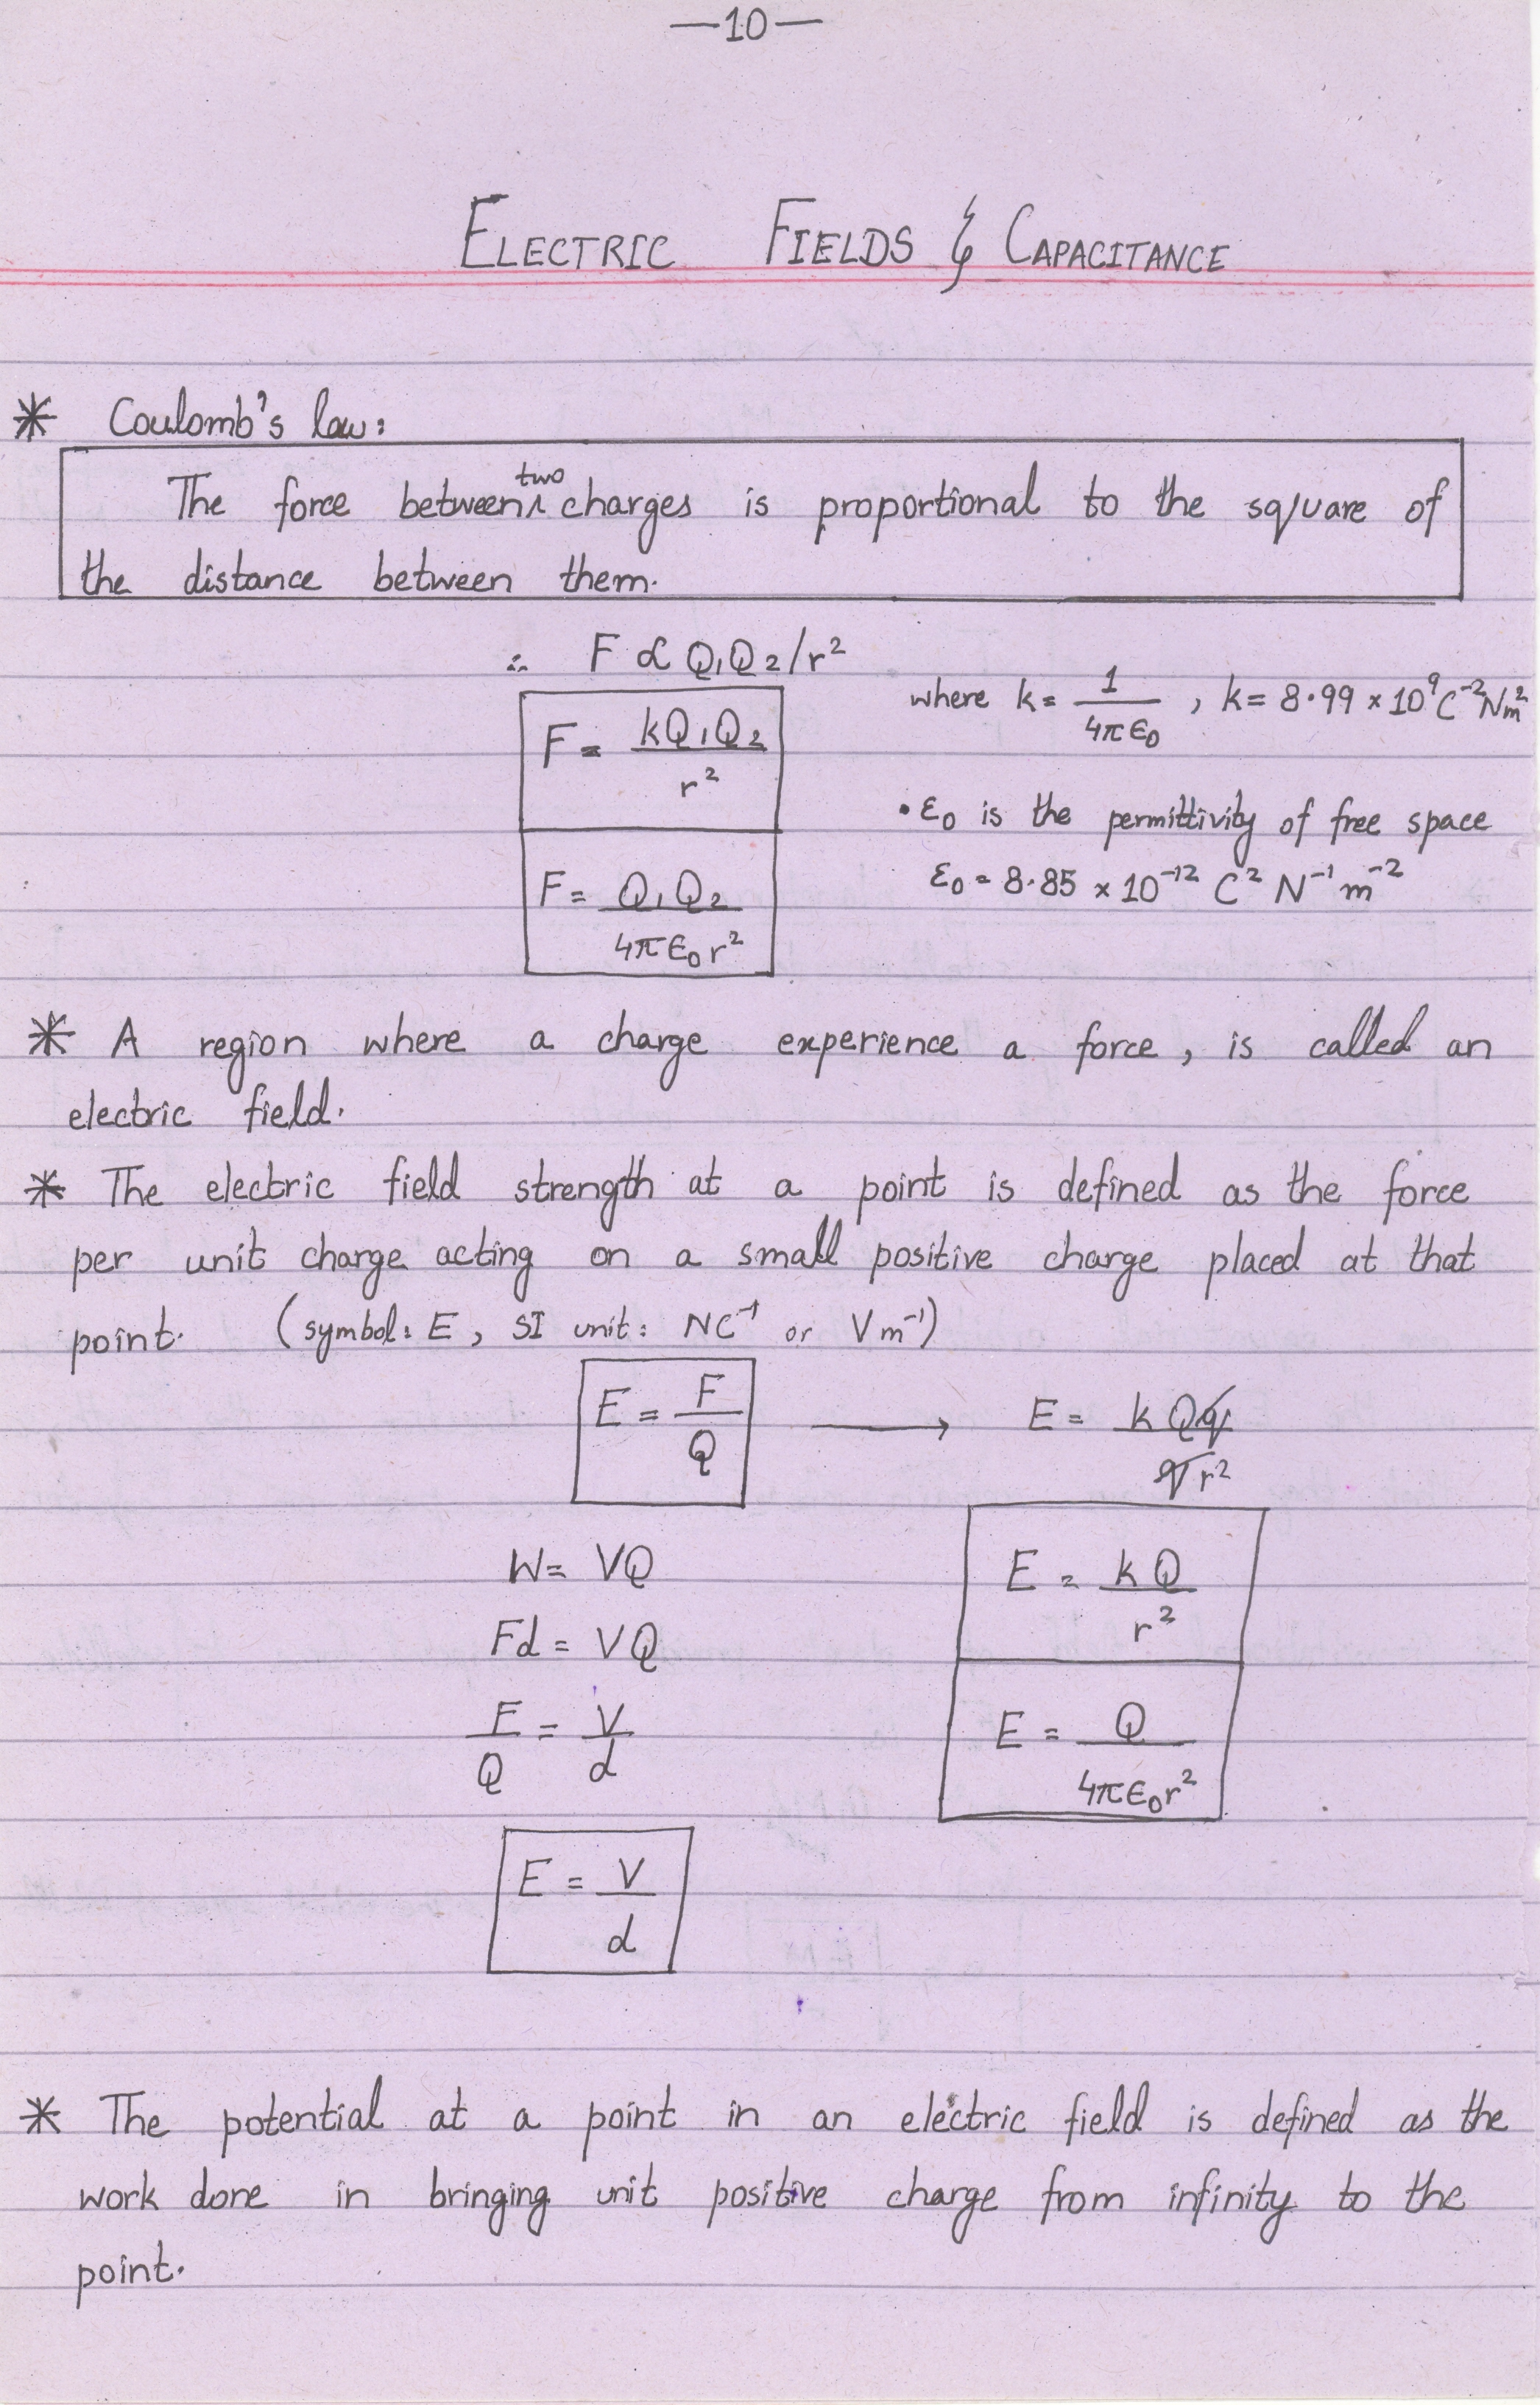 —10—
ELECTRIC FIELDS & CAPACITANCE
* Coulomb's law:
The force between two charges is proportional to the square of
the distance between them.
∴ F ∝ Q₁Q₂/r²
F = kQ₁Q₂/r²
where k = 1/4πε₀ , k = 8.99 × 10⁹ C⁻²Nm²
• ε₀ is the permittivity of free space
ε₀ = 8.85 × 10⁻¹² C² N⁻¹ m⁻²
F = Q₁Q₂/4πε₀r²
* A region where a charge experience a force, is called an
electric field.
* The electric field strength at a point is defined as the force
per unit charge acting on a small positive charge placed at that
point. (symbol: E, SI unit: NC⁻¹ or Vm⁻¹)
E = F/Q → E = kQq/qr²
W = VQ
Fd = VQ
F/Q = V/d
E = V/d
E = kQ/r²
E = Q/4πε₀r²
* The potential at a point in an electric field is defined as the
work done in bringing unit positive charge from infinity to the
point.